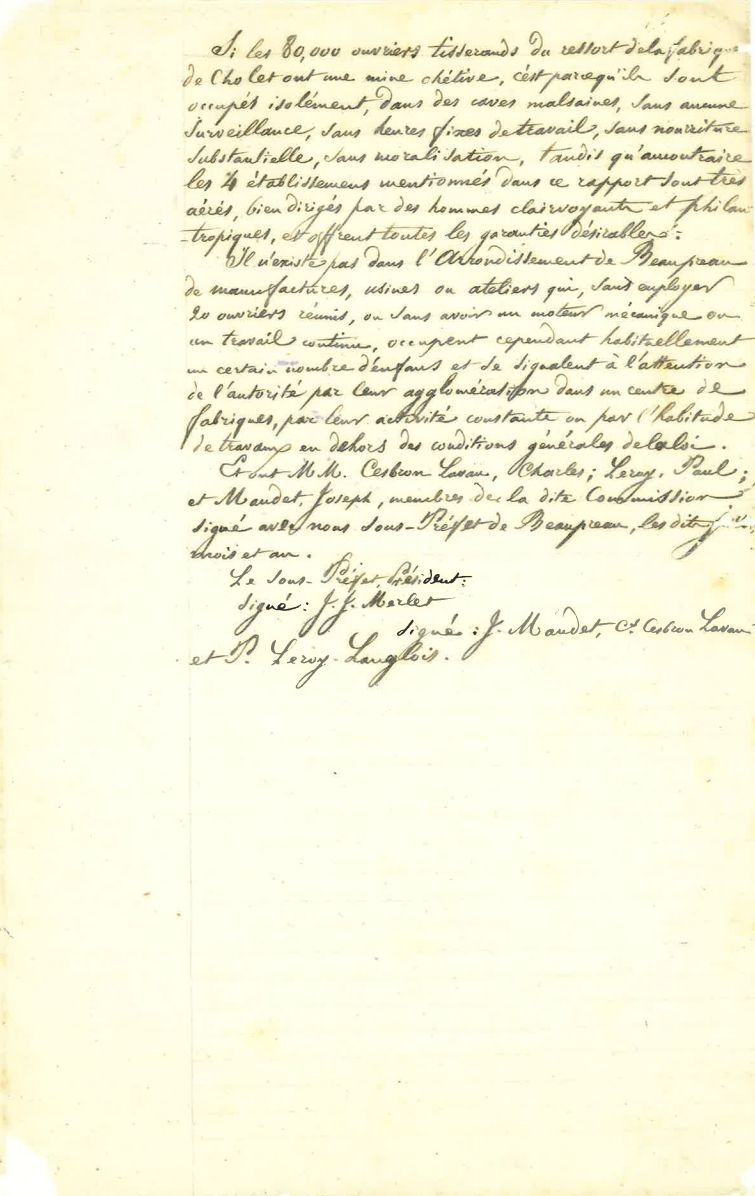 Si les 80,000 ouvriers tisserands du ressort de la fabrique
de Cholet ont une mine chétive, c'est parcequ'ils sont
occupés isolément, dans des caves malsaines, sans aucune
surveillance, sans heures fixes de travail, sans nourriture
substantielle, sans moralisation, tandis qu'au contraire
les 4 établissemens mentionnés dans ce rapport sont très
aérés, bien dirigés par des hommes clairvoyants et philan
-tropiques, et offrent toutes les garanties désirables.
Il n'existe pas dans l'Arrondissement de Beaupreau
de manufactures, usines ou ateliers qui, sans employer
20 ouvriers réunis, ou sans avoir un moteur mécanique ou
un travail continu, occupent cependant habituellement
un certain nombre d'enfans et se signalent à l'attention
de l'autorité par leur agglomération dans un centre de
fabriques, par leur activité constante ou par l'habitude
de travaux en dehors des conditions générales de la loi.
Et ont MM. Cesbron Lavau, Charles; Leroy, Paul;
et Maudet, Joseph, membres de la dite Commission
signé avec nous Sous-Préfet de Beaupreau, les dits
mois et an.
Le Sous-Préfet, Président:
signé: J. J. Merlet
signé: J. Maudet, Ch. Cesbron Lavau
et P. Leroy-Langlois.